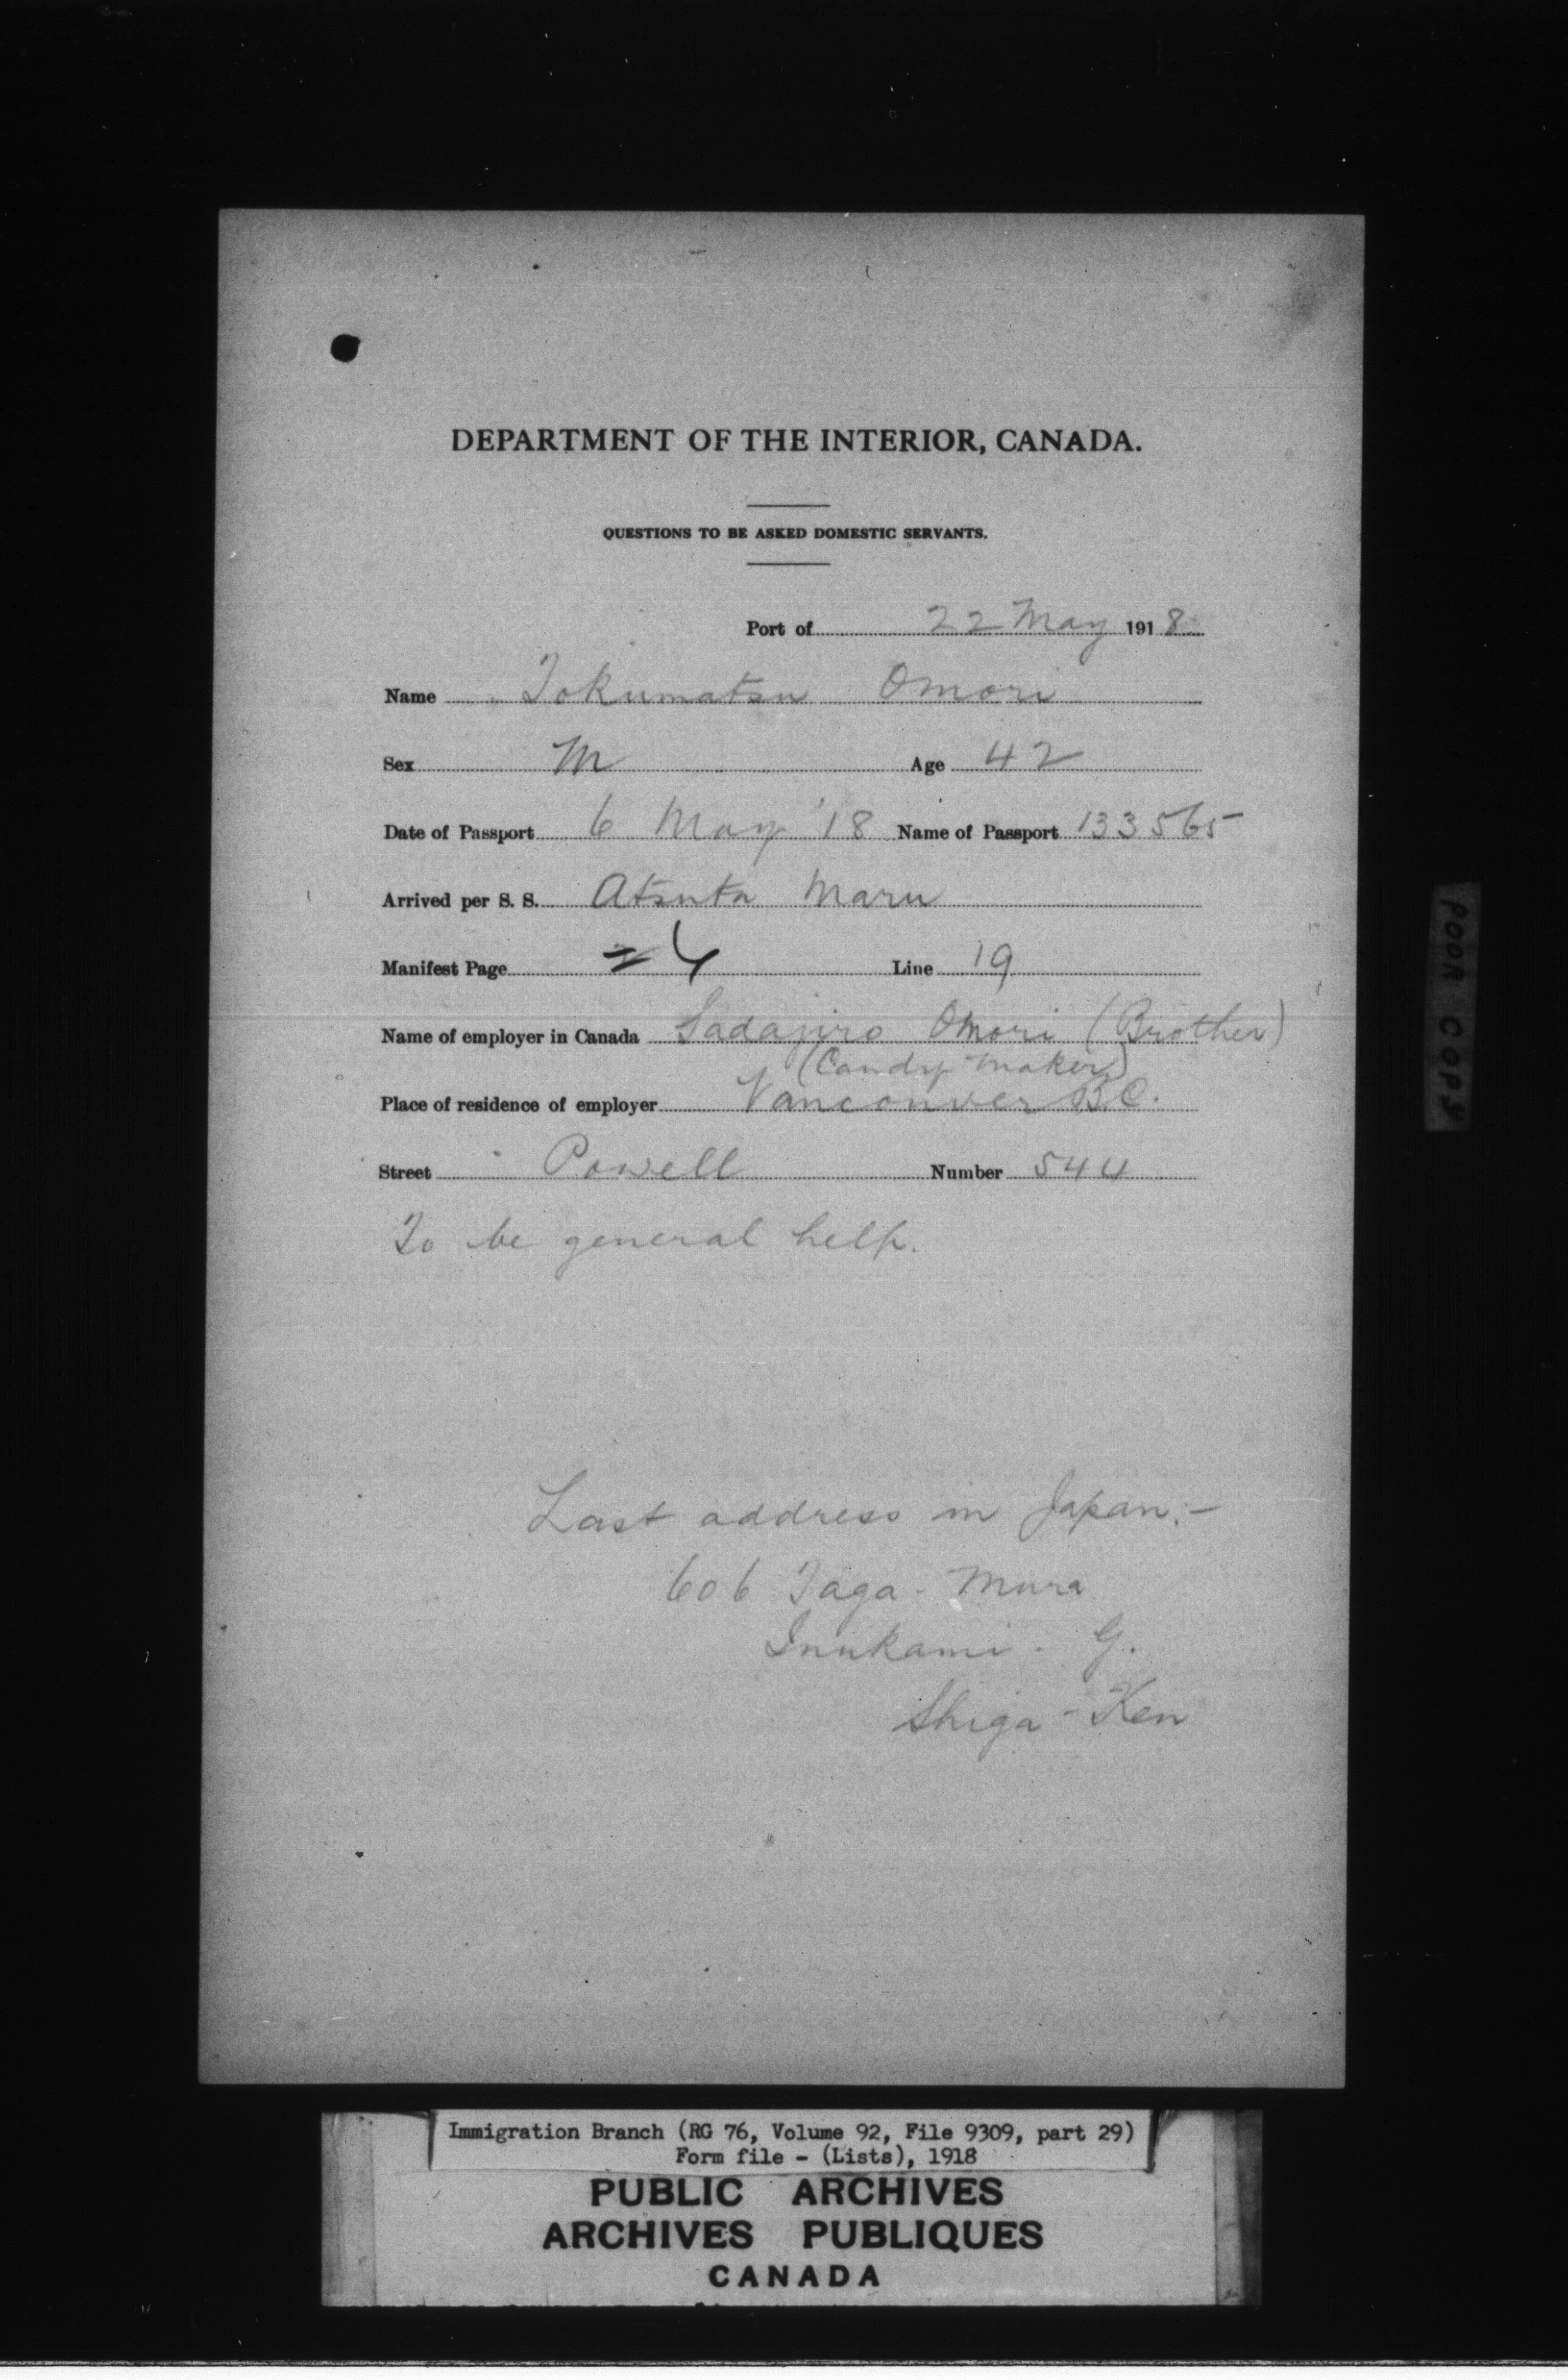 DEPARTMENT OF THE INTERIOR, CANADA.
QUESTIONS TO BE ASKED DOMESTIC SERVANTS.
Port of 22 May 1918
Name Tokumatsu Omori
Sex M Age 42
Date of Passport 6 May '18 Name of Passport 133565
Arrived per S. S. Atsuta Maru
Manifest Page Line 19
Name of employer in Canada Sadajiro Omori (Brother)
(Candy Maker)
Place of residence of employer Vancouver B.C.
Street Powell Number 544
To be general help.
Last address in Japan:-
606 Taga-Mura
Inukami-G.
Shiga-Ken
POOR COPY
Immigration Branch (RG 76, Volume 92, File 9309, part 29)
Form file - (Lists), 1918
PUBLIC ARCHIVES
ARCHIVES PUBLIQUES
CANADA